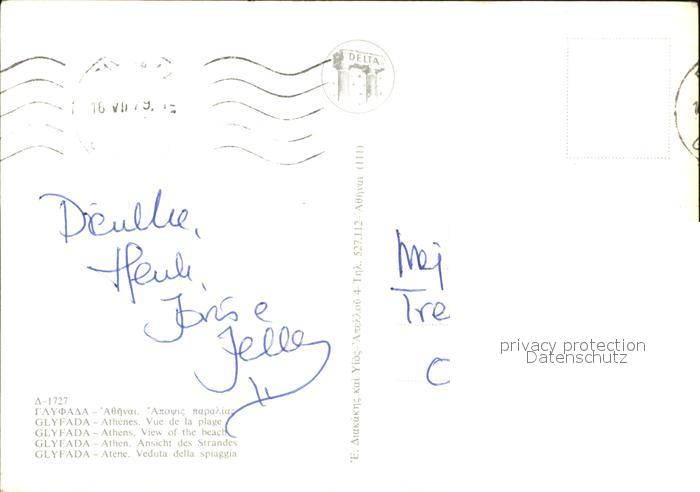 DELTA
16 VII 79
Henk,
Joris e
Jelle
Mej
Tre
privacy protection
Datenschutz
Δ-1727
ΓΛΥΦΑΔΑ - Ἀθῆναι. Ἄποψις παραλίας
GLYFADA - Athènes. Vue de la plage
GLYFADA - Athens. View of the beach
GLYFADA - Athen. Ansicht des Strandes
GLYFADA - Atene. Veduta della spiaggia
Ἐ. Διακάκης καὶ Υἱός - Ἀπόλλου 4 - Τηλ. 527.112 - Ἀθῆναι (111)